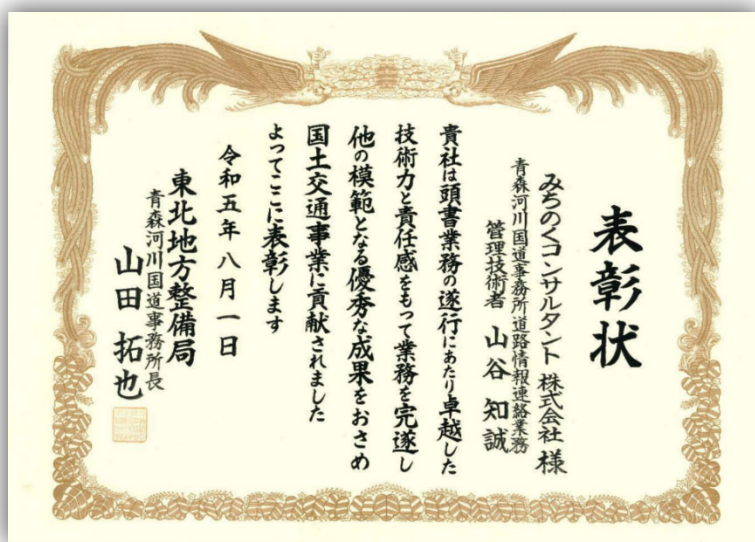 表彰状
みちのくコンサルタント 株式会社 様
青森河川国道事務所道路情報連絡業務
管理技術者 山谷 知誠
貴社は頭書業務の遂行にあたり卓越した
技術力と責任感をもって業務を完遂し
他の模範となる優秀な成果をおさめ
国土交通事業に貢献されました
よってここに表彰します
令和五年八月一日
東北地方整備局
青森河川国道事務所長
山田 拓也